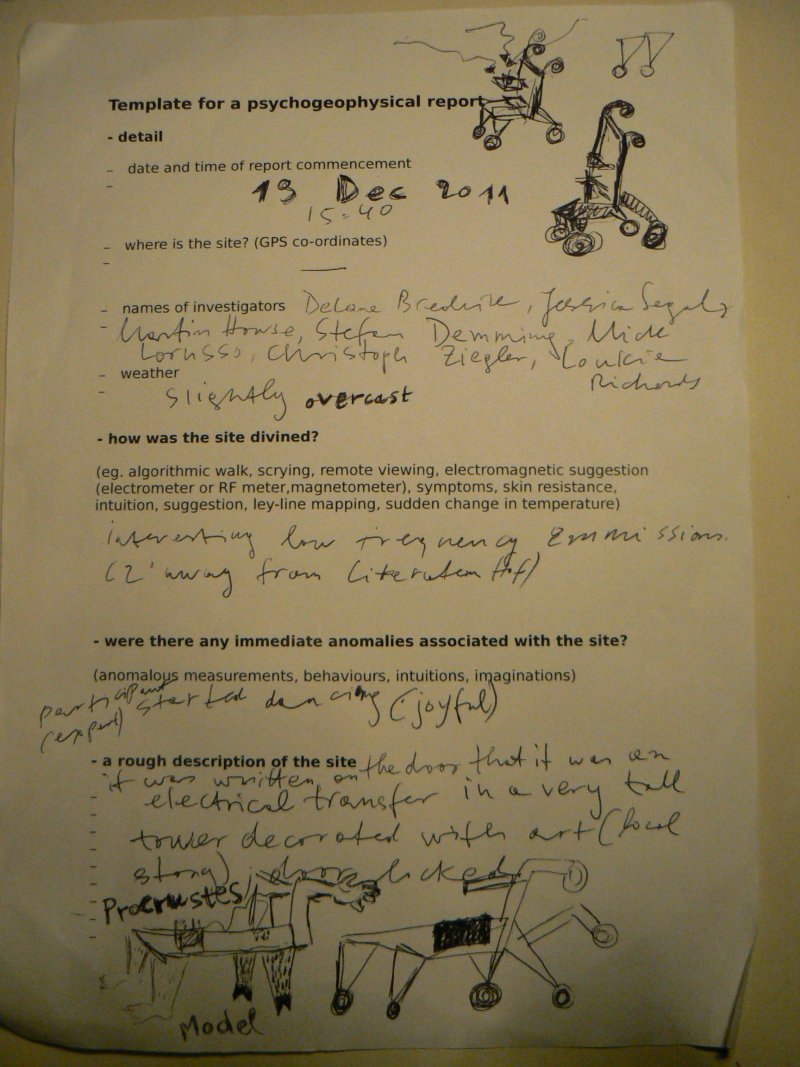 Template for a psychogeophysical report
- detail
– date and time of report commencement
–
19 Dec 2011
15:40
– where is the site? (GPS co-ordinates)
–
– names of investigators Delane Jessica Segall,
– Martin Howse, Stefan Demming, Mick
Lorusso, Christoph Ziegler, Loukia
– weather Richards
– slightly overcast
- how was the site divined?
(eg. algorithmic walk, scrying, remote viewing, electromagnetic suggestion
(electrometer or RF meter,magnetometer), symptoms, skin resistance,
intuition, suggestion, ley-line mapping, sudden change in temperature)
interesting low frequency Emmissions.
(2' away from
- were there any immediate anomalies associated with the site?
(anomalous measurements, behaviours, intuitions, imaginations)
participant started dancing (joyful)
(expert)
- a rough description of the site
it was written on the door that it was an
electrical transfer in a very tall
tower decorated with art (local
story), door locked
Procrustes
Model